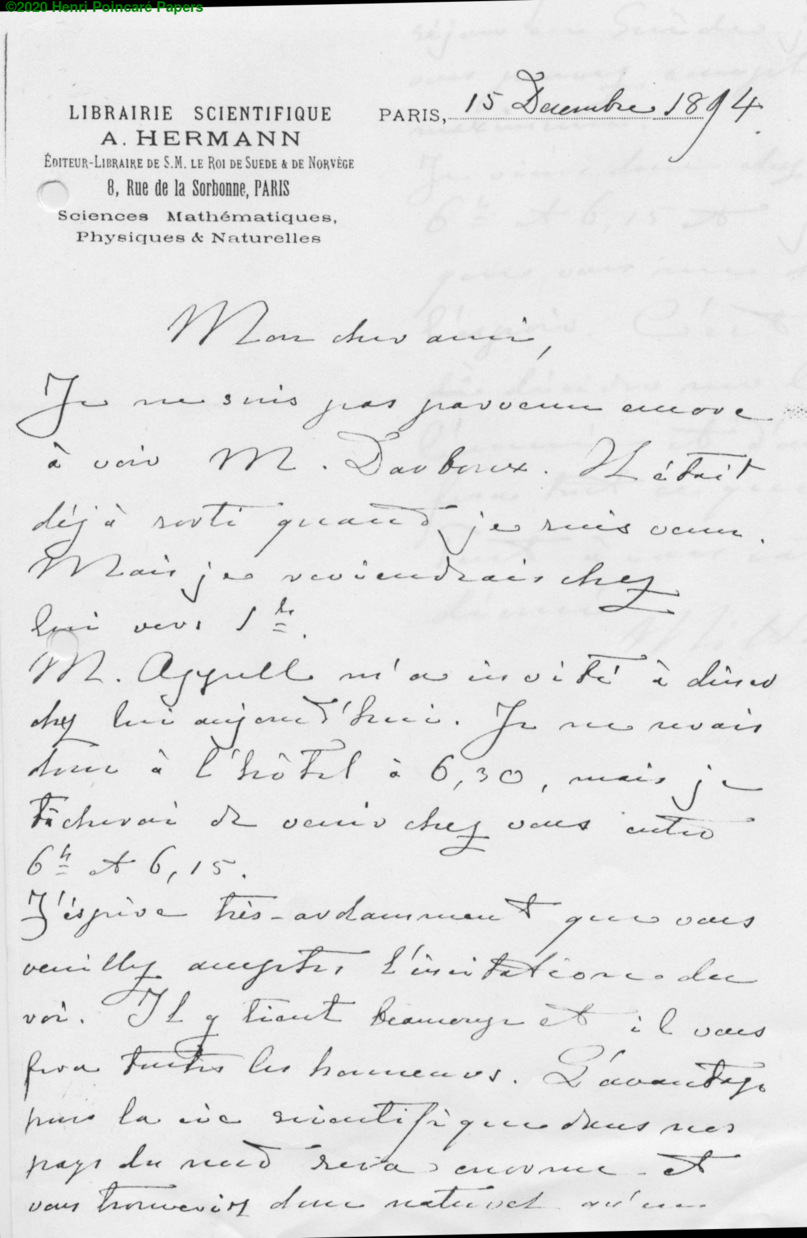 ©2020 Henri Poincaré Papers
LIBRAIRIE SCIENTIFIQUE
A. HERMANN
ÉDITEUR-LIBRAIRE DE S.M. LE ROI DE SUEDE & DE NORVÈGE
8, Rue de la Sorbonne, PARIS
Sciences Mathématiques,
Physiques & Naturelles
PARIS, 15 Decembre 1894.
Mon cher ami,
Je ne suis pas parvenu encore
à voir M. Darboux. Il était
déjà sorti quand je suis venu.
Mais je reviendrais chez
lui vers 1h.
M. Appell m'a invité à diner
chez lui aujourd'hui. Je ne vais
donc à l'hôtel à 6,30, mais je
tâcherai de venir chez vous entre
6h et 6,15.
J'éspère très-ardamment que vous
veuillez accepter l'invitation du
roi. Il y tient beaucoup et il vous
fera toutes les honneurs. L'avantage
pour la vie scientifique dans nos
pays du nord sera enorme et
vous trouverez donc naturel qu'un